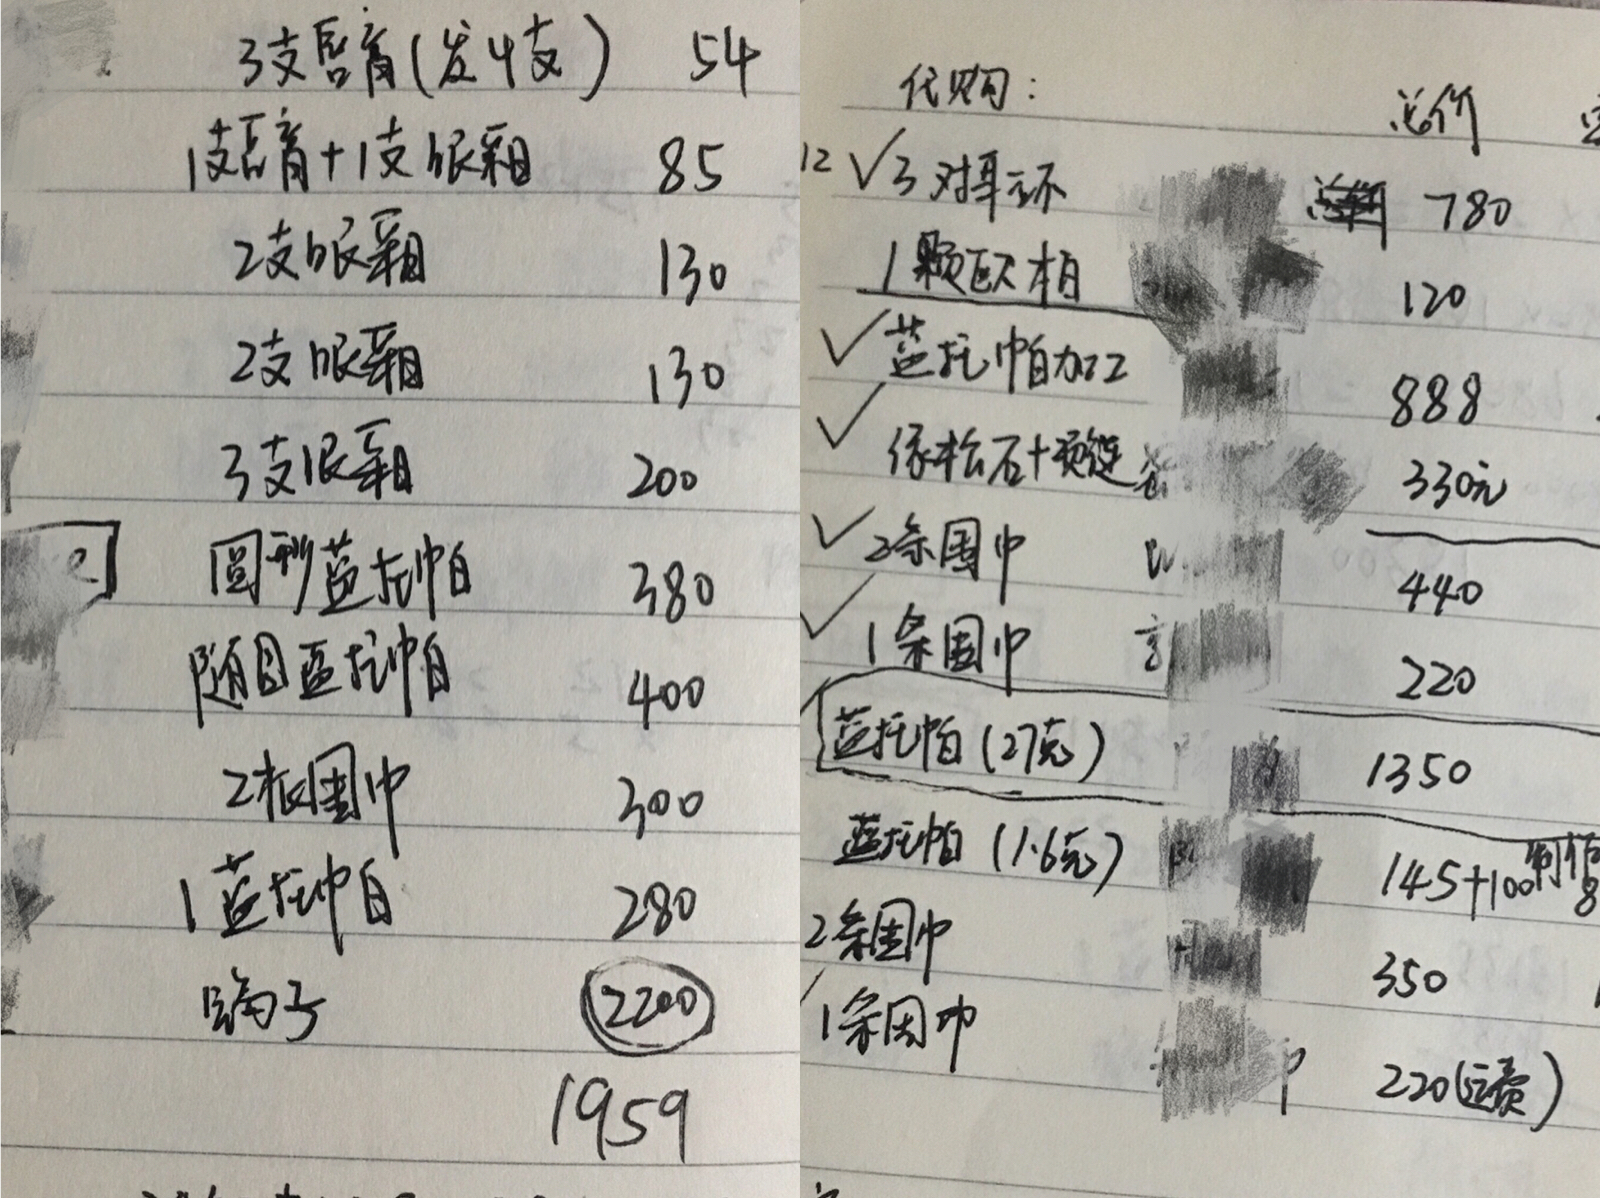 3支唇膏(发4支) 54
1支唇膏+1支眼霜 85
2支眼霜 130
2支眼霜 130
3支眼霜 200
圆形蓝托帕 380
随形蓝托帕 400
2根围巾 300
1蓝托帕 280
镯子 2200
1959
代购: 总价
12 √3对耳环 780
1颗欧柏 120
√蓝托帕加工 888
√绿松石+项链 330元
√2条围巾 440
√1条围巾 220
蓝托帕(27克) 1350
蓝托帕(1.6克) 145+100制作
2条围巾 350
1条围巾 220(运费)